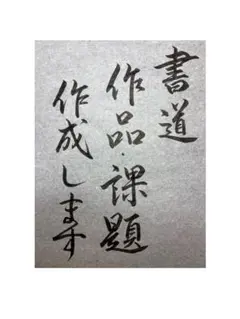 書道
作品・課題
作成します